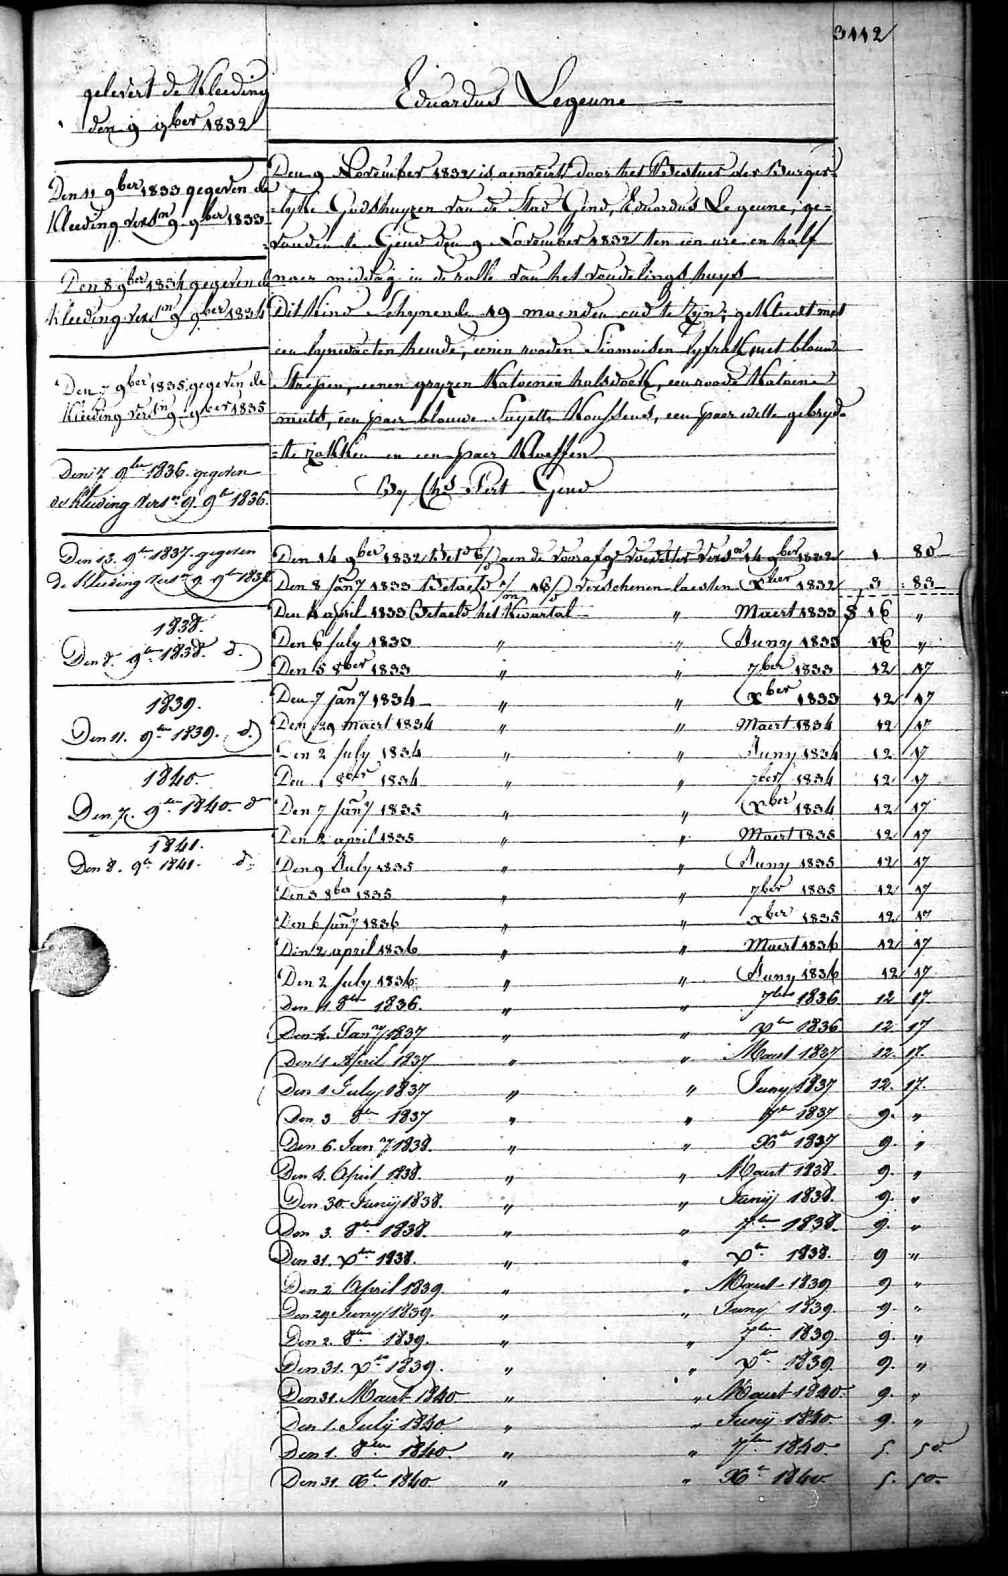 3112
gelevert de Kleeding
den 9 9ber 1832
Den 11 9ber 1833 gegeven de
Kleeding versn 9 9ber 1833
Den 8 9ber 1834 gegeven de
Kleeding versn 9 9ber 1834
Den 7 9ber 1835 gegeven de
Kleeding versn 9 9ber 1835
Den 7 9ber 1836. gegeven
de Kleeding versn 9. 9r 1836.
Den 13. 9r 1837. gegeven
de Kleeding versn 9 9r 1837
1838.
Den 8. 9r 1838. d.
1839.
Den 11. 9r 1839. d.
1840.
Den 7. 9r 1840. d
1841.
Den 8. 9r 1841. d.
Eduardus Legeune
Den 9 November 1832 is aenveirt door het Bestuer der Burger-
-lyke Godshuyzen van de Stad Gend, Eduardus Legeune, ge-
-vonden te Gend den 9 November 1832 ten een ure en half
naer middag in de rolle van het vondelings huys
Dit Kind schynende 19 maenden oud te zyn, gekleedt met
een lynwaeten hemde, eenen rooden Siamoisen lyfrok met blauwe
Strepen, eenen gryzen Katoenen halsdoek, een roode Katoene
muts, een paer blauwe Sayette Koussens, een paer wolle gebryde
-te zokken en een paer Kloeffen
By Chs Pert Gend
Den 14 9ber 1832 aen de voorafge voedster versn 14 9ber 1832 1 80
Den 8 Jany 1833 Betaeld verschenen laesten Xber 1832 3 83
Den 4 april 1833 Betaeld het Kwartal " Maert 1833 16 "
Den 6 July 1833 " " Juny 1833 16 "
Den 5 8ber 1833 " " 7ber 1833 12 17
Den 7 Jany 1834 " " Xber 1833 12 17
Den 29 maert 1834 " " Maert 1834 12 17
Den 2 July 1834 " " Juny 1834 12 17
Den 1 8ber 1834 " " 7ber 1834 12 17
Den 7 Jany 1835 " " Xber 1834 12 17
Den 2 april 1835 " " Maert 1835 12 17
Den 9 July 1835 " " Juny 1835 12 17
Den 3 8ber 1835 " " 7ber 1835 12 17
Den 6 Jany 1836 " " Xber 1835 12 17
Den 2 april 1836 " " Maert 1836 12 17
Den 2 July 1836 " " Juny 1836 12 17
Den 4 8ber 1836. " " 7ber 1836 12 17.
Den 4. Jany 1837 " " Xber 1836 12. 17
Den 4 April 1837 " " Maert 1837 12. 17.
Den 1 July 1837 " " Juny 1837 12. 17.
Den 3 8ber 1837 " " 7r 1837 9. "
Den 6. Jany 1838. " " Xr 1837 9. "
Den 4. April 1838. " " Maert 1838. 9. "
Den 30. Junij 1838. " " Junij 1838. 9. "
Den 3. 8ber 1838. " " 7ber 1838. 9. "
Den 31. Xber 1838. " " Xr 1838. 9 "
Den 2. April 1839. " " Maert 1839 9 "
Den 29 Juny 1839. " " Juny 1839 9. "
Den 2. 8ber 1839. " " 7ber 1839 9. "
Den 31. Xr 1839. " " Xr 1839 9. "
Den 31. Maert 1840 " " Maert 1840 9. "
Den 1. Julij 1840. " " Junij 1840. 9. "
Den 1. 8ber 1840. " " 7ber 1840. 5. 50.
Den 31. Xr 1840. " " Xr 1840. 5. 50.